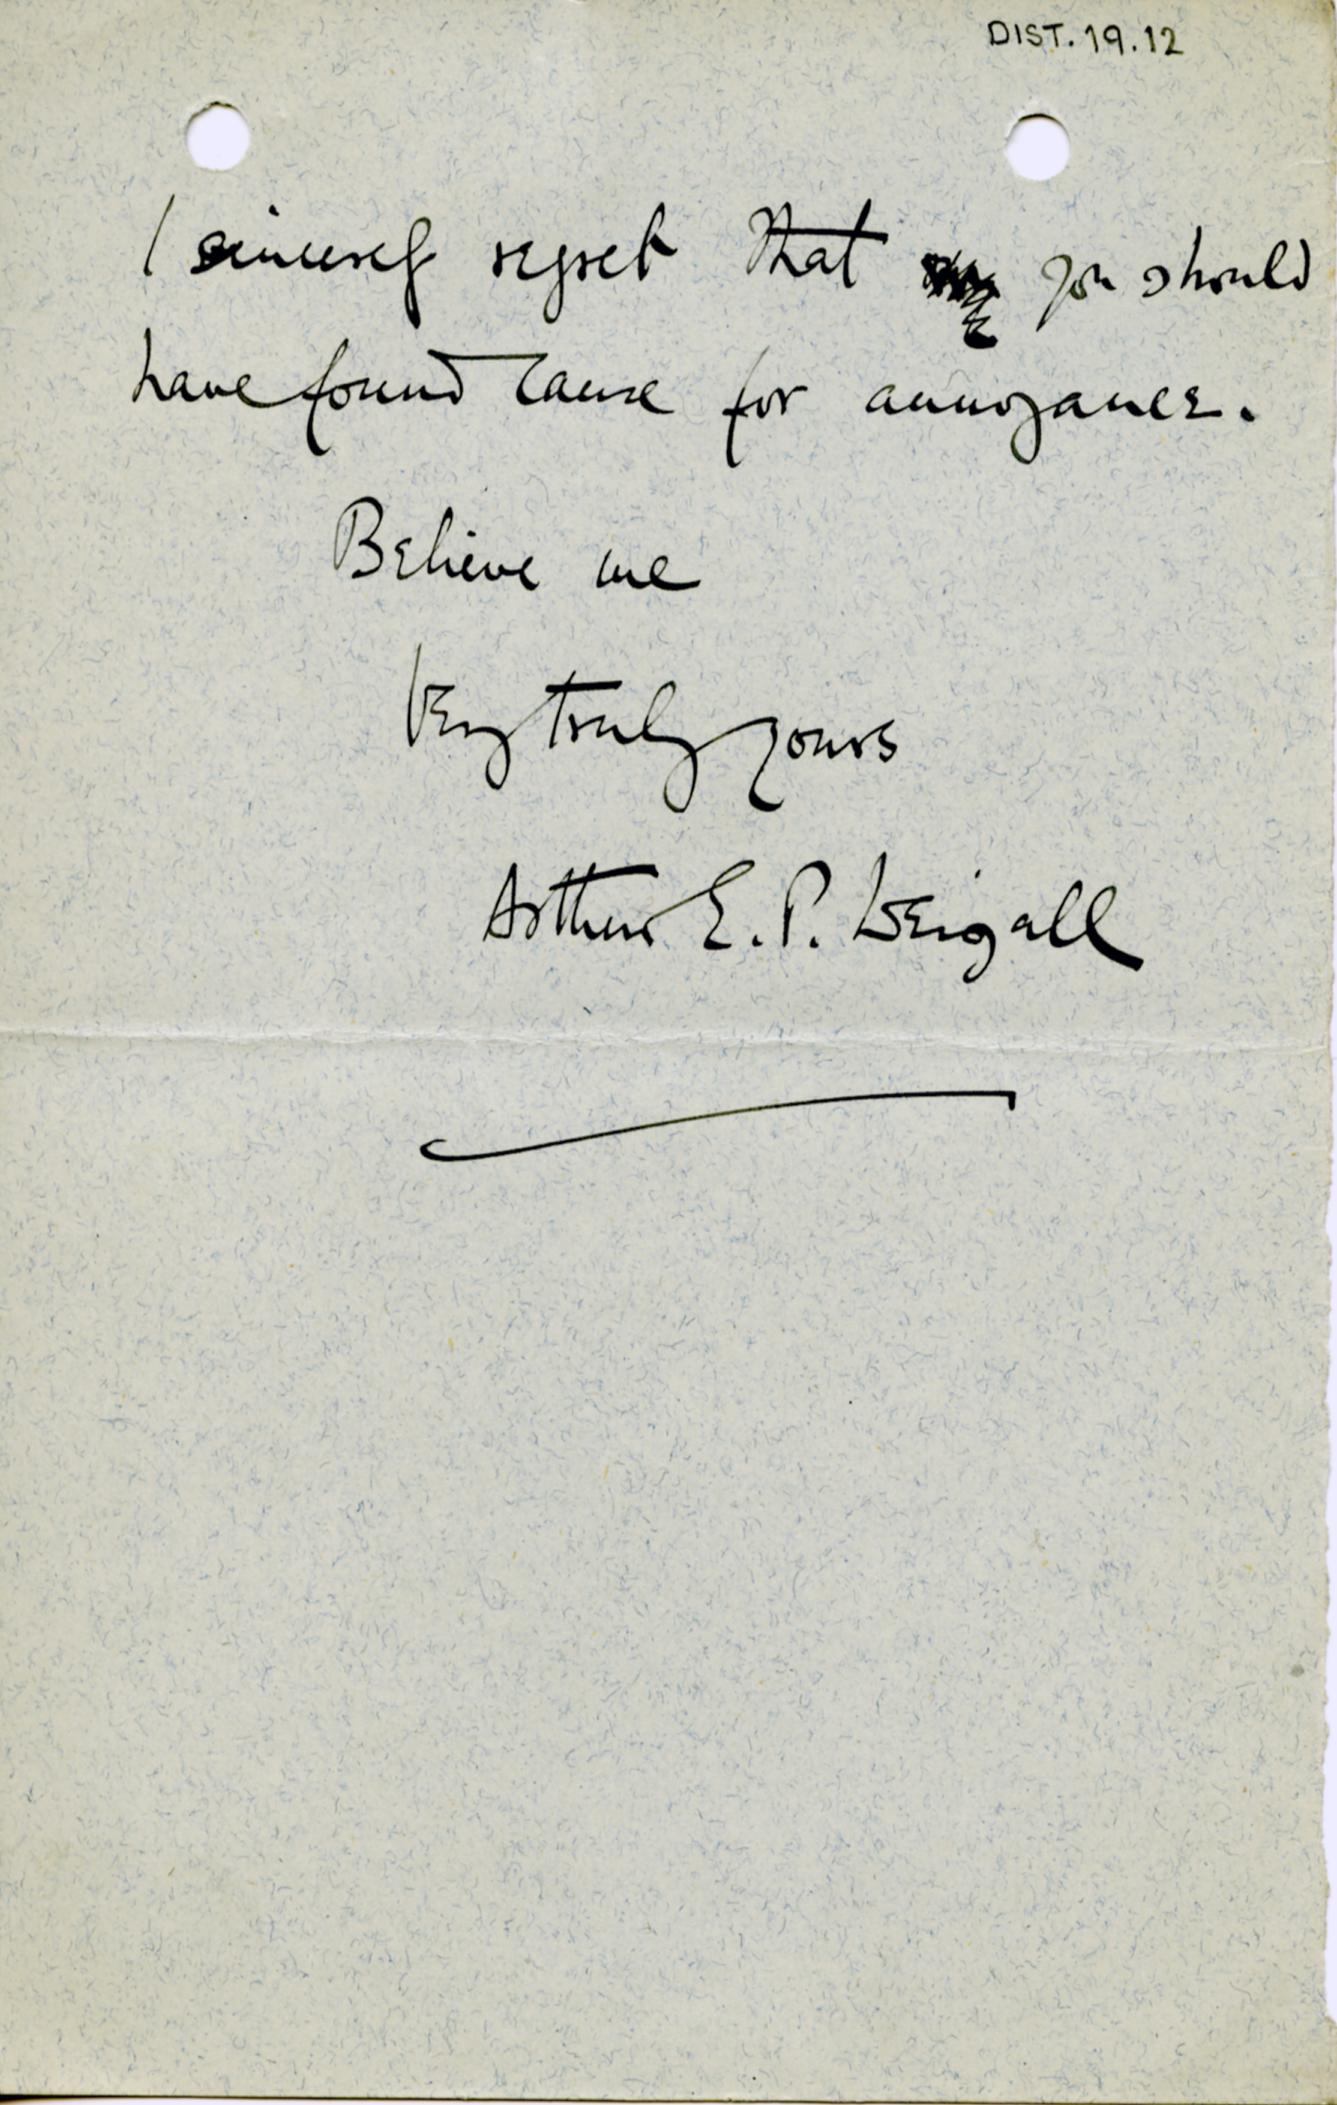 DIST. 19.12
I sincerely regret that you should
have found cause for annoyance.
Believe me
Very truly yours
Arthur E. P. Weigall